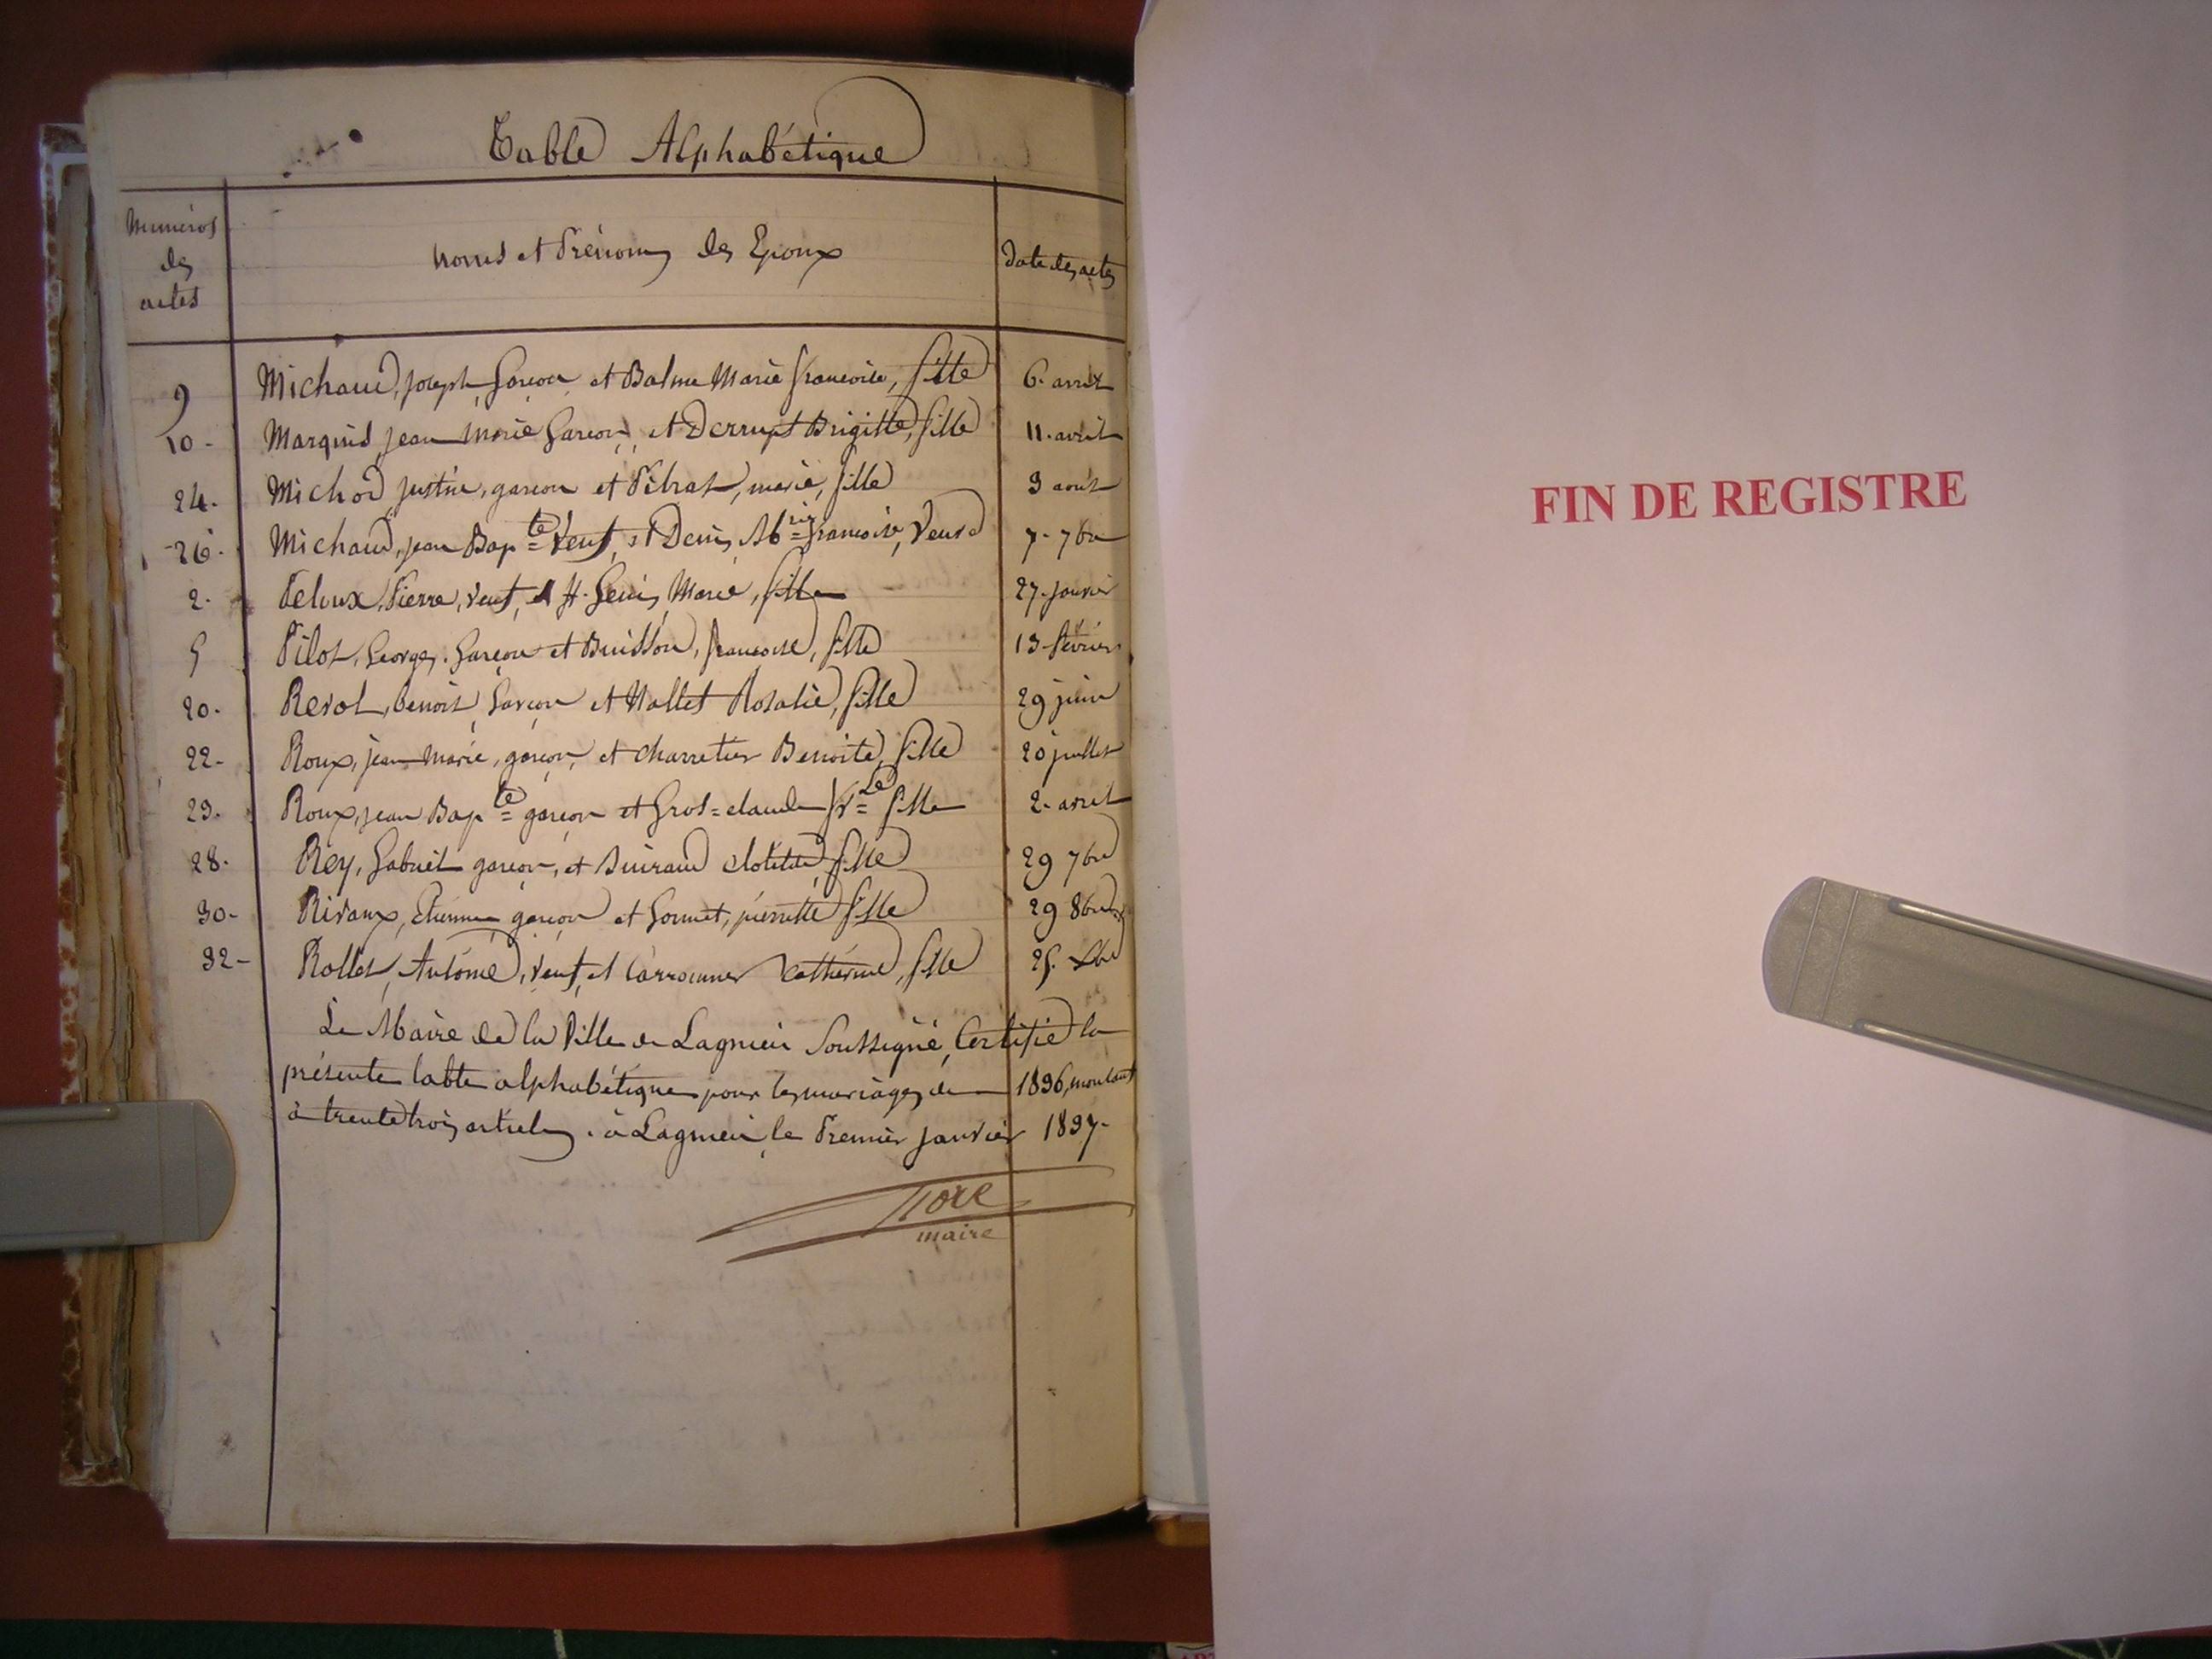 Table Alphabétique
Numéros
des
actes
Noms et Prénoms des Epoux
Date des actes
9 Michaud, joseph Garçon et Balme Marie françoise, fille 6. avril
10 - Marquis, jean Marie Garçon, et Derrupt Brigitte, fille 11. avril
24. Michod justin, garçon et Pibrat, marie, fille 3 août
26. Michaud, jean Bap.te Veuf, et Denis, M.rie françoise, Veuve 7 - 7bre
2. Peloux, Pierre, veuf, et St. Genis, Marie, fille 27. janvier
5 Pilot, Georges. Garçon et Buisson, françoise, fille 13 février
20. Revol, benoit, Garçon et Mallet Rosalie, fille 29 juin
22 - Roux, jean marie, garçon, et Charretier Benoite, fille 20 juillet
23. Roux, jean Bap.te garçon et Gros=claude fr.se fille 2. avril
28. Rey, Gabriel garçon, et Buiraud clotilde, fille 29 7bre
30 - Rivaux, Etienne garçon et Gonnet, pierrette fille 29 8bre
32 - Rollet, Antoine, veuf, et Carronnier catherine, fille 25.
Le Maire de la Ville de Lagnieu Soussigné, Certifie la
présente table alphabétique pour les mariages de 1836, montant
à trente trois articles. à Lagnieu le Premier janvier 1837.
maire
FIN DE REGISTRE